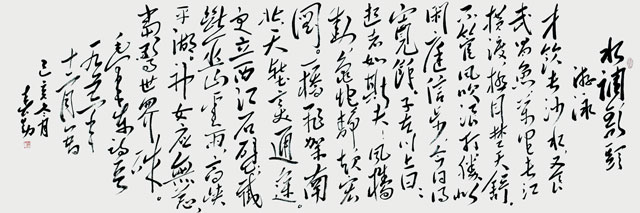 水調歌頭
游泳
才饮长沙水，又食
武昌鱼。万里长江
横渡，极目楚天舒。
不管风吹浪打，胜似
闲庭信步，今日得
宽馀。子在川上曰：
逝者如斯夫！风樯
动，龟蛇静，起宏
图。一橋飛架南
北，天堑变通途。
更立西江石壁，截
断巫山云雨，高峡
平湖。神女应无恙，
當驚世界殊。
一九五六年
己亥冬月